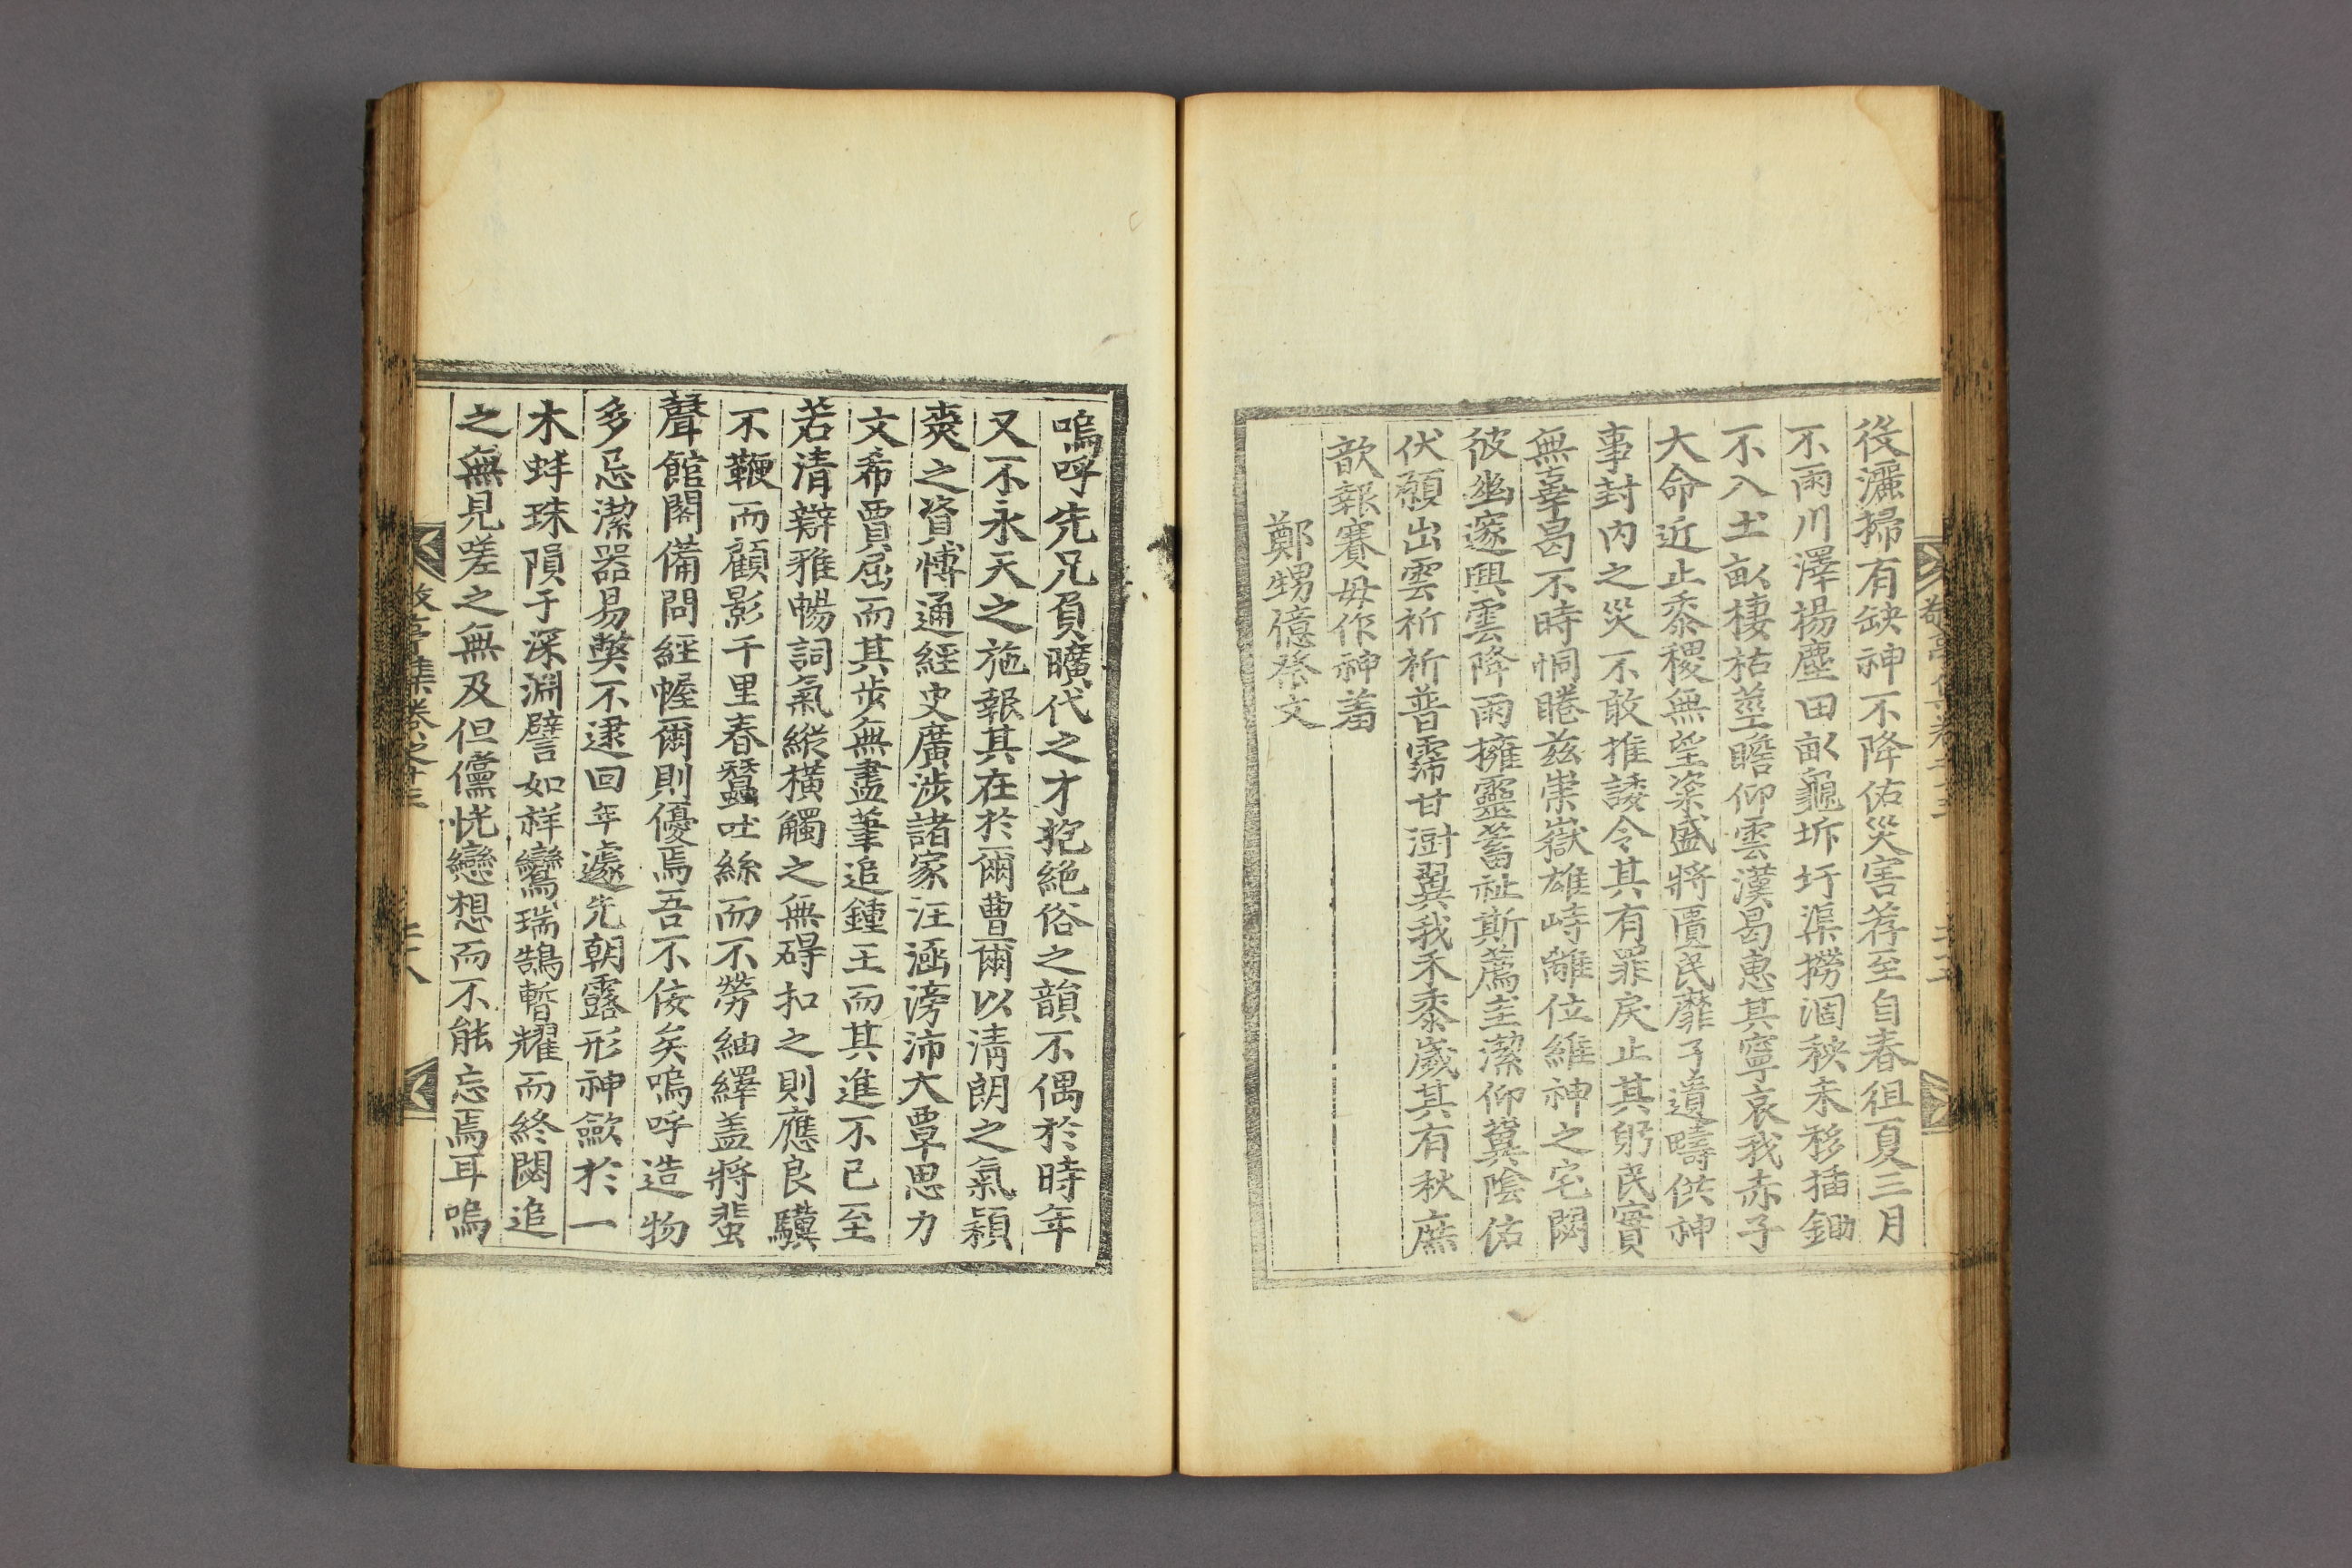 役灑掃有缺神不降佑災害荐至自春徂夏三月
不雨川澤揚塵田畝龜坼圩渠撈涸秧未移插鋤
不入土畝棲枯莖瞻仰雲漢曷惠其寧哀我赤子
大命近止黍稷無望粢盛將匱民靡孑遺疇供神
事封內之災不敢推諉令其有罪戾止其躬民實
無辜曷不時恫睠茲崇嶽雄峙離位維神之宅閟
彼幽邃興雲降雨擁靈蓄祉斯薦圭潔仰冀陰佑
伏願出雲祈祈普霈甘澍翼我禾黍歲其有秋庶
歆報賽毋作神羞
鄭甥億祭文
敬亭集卷之十三
嗚呼先兄負曠代之才抱絕俗之韻不偶於時年
又不永天之施報其在於爾曹爾以淸朗之氣穎
爽之資博通經史廣涉諸家汪涵滂沛大覃思力
文希賈屈而其步無盡筆追鍾王而其進不已至
若清辯雅暢詞氣縱橫觸之無碍扣之則應良驥
不鞭而顧影千里春蠶吐絲而不勞紬繹盖將蜚
聲館閣備問經幄爾則優焉吾不佞矣嗚呼造物
多忌潔器易獘不逮回年遽先朝露形神歛於一
木蚌珠隕于深淵譬如祥鸞瑞鵠暫耀而終閟追
之無見嗟之無及但儻恍戀想而不能忘焉耳嗚
敬亭集卷之十三